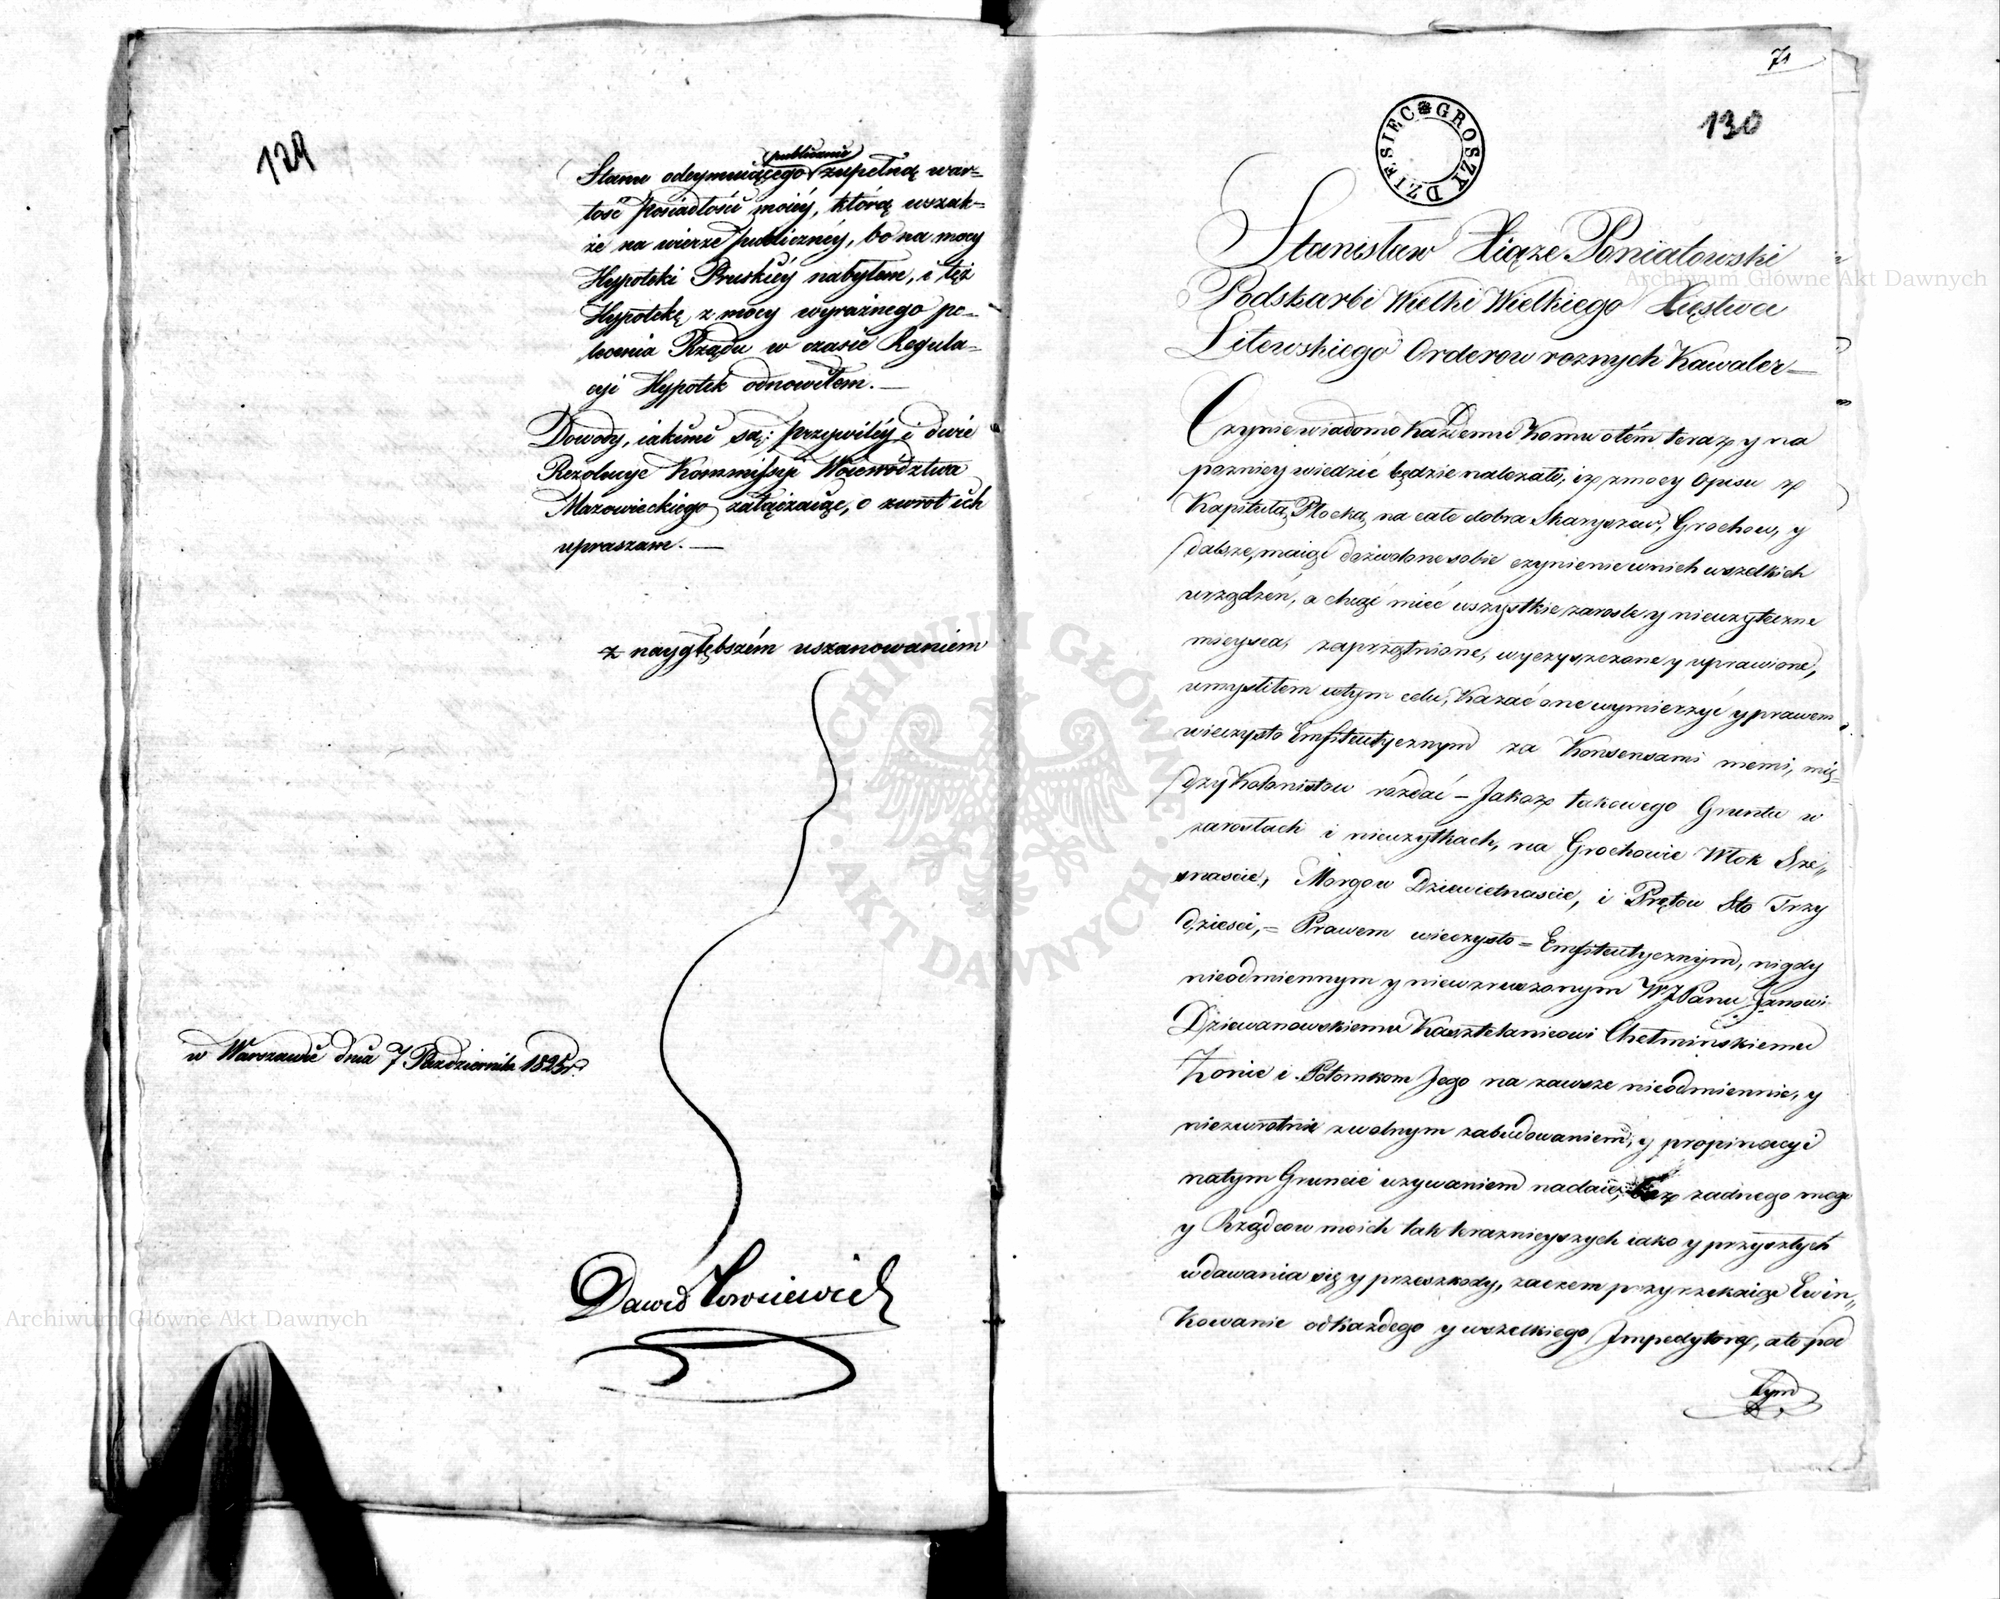 129
publicznie
Stanu odeymuiącego zupełną war=
tość posiadłości moiéy, którą wszak=
że na wierze publicznéy, bo na mocy
Hypoteki Pruskiéy nabyłem, i też
Hypotekę z mocy wyraźnego po=
lecenia Rządu w czasie Regula=
cyi Hypotek odnowiłem. —
Dowody, iakiemi są: przywiléy i dwie
Rezolucye Kommissyi Woiewództwa
Mazowieckiego załączaiąc, o zwrot ich
upraszam. —
z naygłębszém uszanowaniem
w Warszawie dnia 7 Pazdziernika 1825 r.
Dawid
71
130
DZIESIEC GROSZY
Stanisław Xiąze Poniatowski
Podskarbi Wielki Wielkiego Xięstwa
Litewskiego Orderow roznych Kawaler —
Czynie wiadomo Każdemu Komu otém teraz y na
pozniey wiedzić będzie nalezało, iż zmocy Opisu z
Kapitułą Płocką, na całe dobra Skaryszew, Grochow, y
dalsze, maiąc dozwolone sobie czynienie wnich wszelkich
urządzeń, a chcąc mieć wszystkie zarosle y nieuzyteczne
mieysca, zaprzątnione, wyczyszczone y uprawione,
umysliłem wtym celu, Kazać one wymierzyć y prawem
wieczysto Emfiteutycznym za Konsensami memi, mię=
dzy Kolonistow rozdać — Jakoż takowego Gruntu w
zaroslach i nieuzytkach, na Grochowie Włok Sze„
snascie, Morgow Dziewietnascie, i Prętow Sto Trzy
dziesci, = Prawem wieczysto = Emfiteutycznym, nigdy
nieodmiennym y niewzruszonym WJPanu Janowi
Dziewanowskiemu Kasztelanicowi Chełmińskiemu
Zonie i Potomkom Jego na zawsze nieodmiennie, y
niezwrotnie zwolnym zabudowaniem, y propinacyi
natym Gruncie uzywaniem nadaię, bez zadnego mego
y Rządcow moich tak teraznieyszych iako y przyszłych
wdawania się y przeszkody, zaczem przyrzekaiąc Ewin„
Kowanie odkażdego y wszelkiego Impedytora, ale pod
tym
Archiwum Główne Akt Dawnych
Archiwum Główne Akt Dawnych
ARCHIWUM GŁÓWNE · AKT DAWNYCH ·